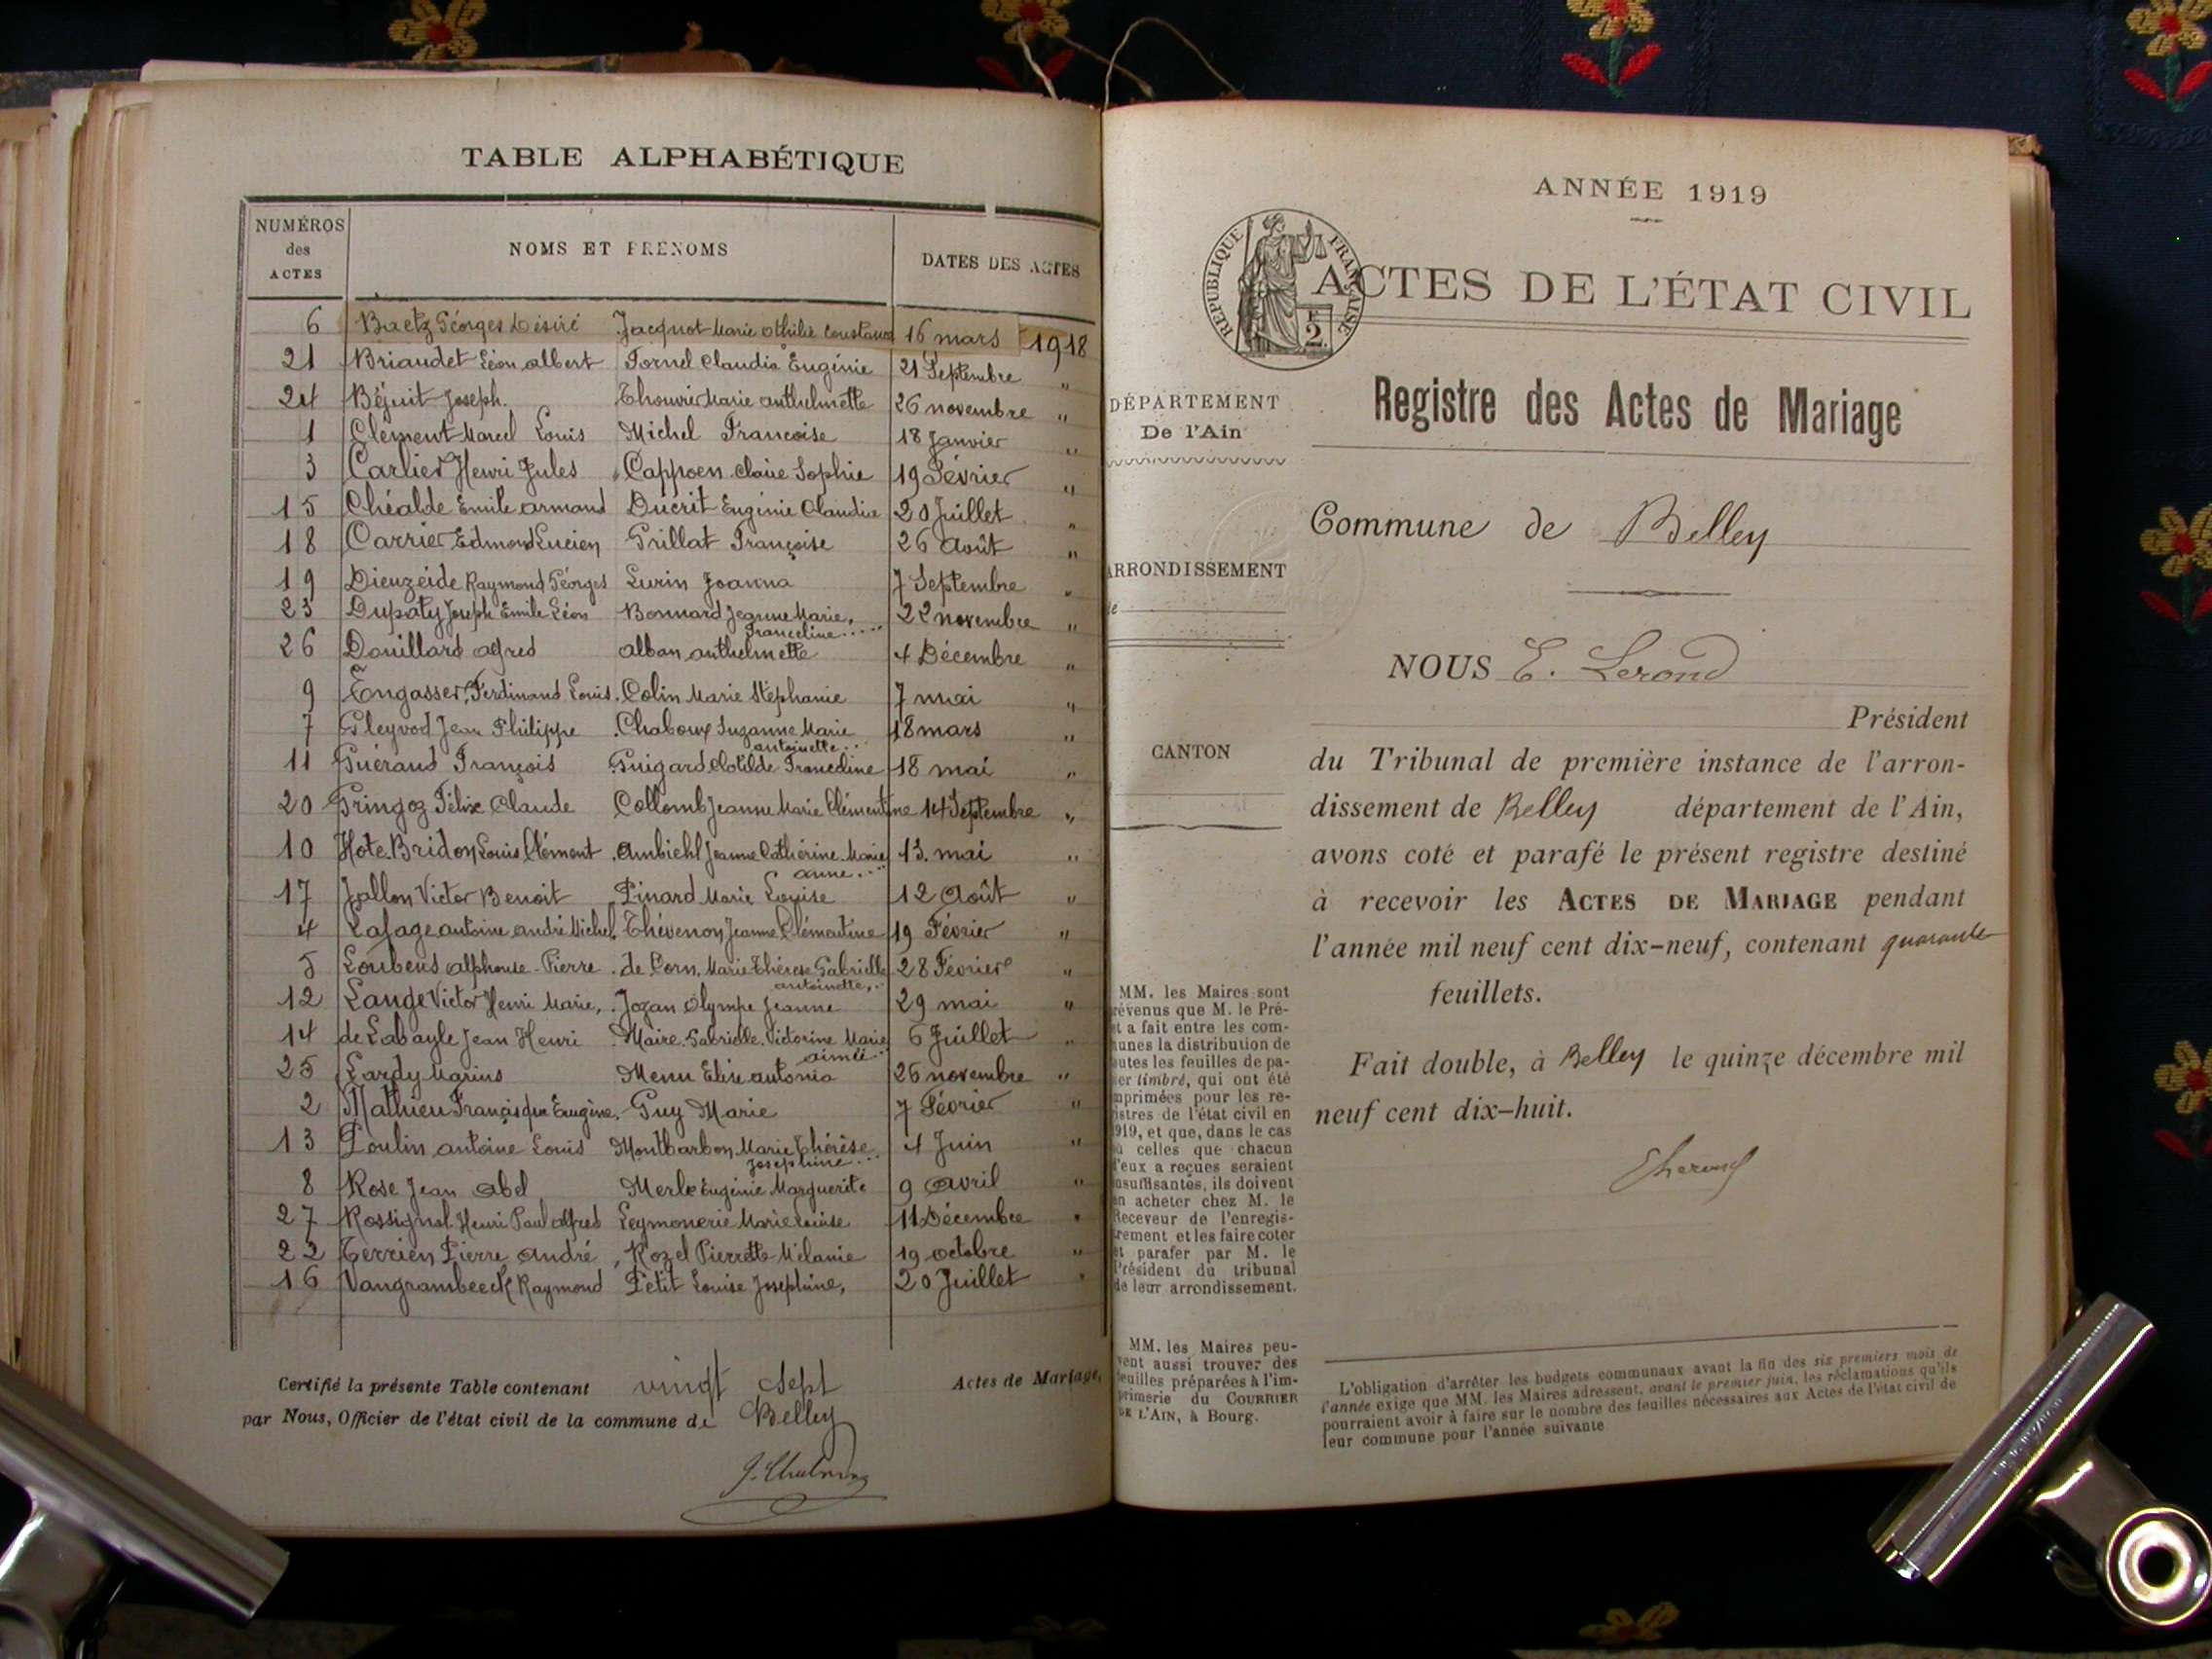 TABLE ALPHABÉTIQUE
NUMÉROS des ACTES
NOMS ET PRÉNOMS
DATES DES ACTES
6 Baetz Géorges Désiré Jacquot Marie Othilie 16 mars 1918
21 Briaudet Léon albert Fornel Claudia Eugénie 21 Septembre "
24 Béjuit Joseph. Thouvier Marie anthelmette 26 novembre "
1 Clément Marcel Louis Michel Francoise 18 Janvier "
3 Carlier Henri Jules Cappoen Claire Sophie 19 Février "
15 Chéalde Emile armand Ducrit Eugénie Claudia 20 Juillet "
18 Carrier Edmond Lucien Grillat Françoise 26 Août "
19 Dieuzeide Raymond Géorges Lurin Joanna 7 Septembre "
23 Dupaty Joseph Emile Léon Bonnard Jeanne Marie, 22 novembre "
Franceline
26 Douillard alfred alban anthelmette 4 Décembre "
9 Engasser, Ferdinand Louis. Colin Marie Stéphanie 7 mai "
7 Gleyvod Jean Philippe Chaboux Suzanne Marie 18 mars "
antoinette
11 Guéraud François Guigard Clotilde Franceline 18 mai "
20 Gringoz Félix Claude Collomb Jeanne Marie Clémentine 14 Septembre "
10 Hote-Bridon Louis Clément ambiehl Jeanne Cathérine Marie 13. mai "
anne
17 Jallon Victor Benoit Pinard Marie Louise 12 Août "
4 Lafage antoine andré Michel Thévenon Jeanne Clémentine 19 Février "
5 Loubens alphonse Pierre de Corn. Marie Thérèse Gabrielle 28 Février "
antoinette
12 Lange Victor Henri Marie, Jozan Olympe Jeanne 29 mai "
14 de Labayle Jean Henri Maire Gabrielle Victorine Marie 6 Juillet "
aimée
25 Lardy Marius Menu Elise antonia 26 novembre "
2 Mathieu Eugène. Guy Marie 7 Février "
13 Poulin antoine Louis Montbarbon Marie Thérèse 4 Juin "
Joséphine
8 Rose Jean Abel Merle Eugénie Marguerite 9 Avril "
27 Rossignol Henri Paul alfred Leymonerie Marie Louise 11 Décembre "
22 Terrien Pierre andré, Rozel Pierrette Mélanie 19 octobre "
16 Vangrambeeck Raymond Petit Louise Joséphine, 20 Juillet "
Certifié la présente Table contenant vingt sept Actes de Mariage,
par Nous, Officier de l'état civil de la commune de Belley
ANNÉE 1919
RÉPUBLIQUE FRANÇAISE
ACTES DE L'ÉTAT CIVIL
Registre des Actes de Mariage
DÉPARTEMENT
De l'Ain
Commune de Belley
ARRONDISSEMENT
NOUS E. Lerond
Président
CANTON
du Tribunal de première instance de l'arron-
dissement de Belley département de l'Ain,
avons coté et parafé le présent registre destiné
à recevoir les ACTES DE MARIAGE pendant
l'année mil neuf cent dix-neuf, contenant quarante
feuillets.
Fait double, à Belley le quinze décembre mil
neuf cent dix-huit.
MM. les Maires sont
révenus que M. le Pré-
et a fait entre les com-
unes la distribution de
outes les feuilles de pa-
er timbré, qui ont été
mprimées pour les re-
istres de l'état civil en
919, et que, dans le cas
ù celles que chacun
'eux a reçues seraient
nsuffisantes, ils doivent
en acheter chez M. le
Receveur de l'enregis-
trement et les faire coter
et parafer par M. le
Président du tribunal
de leur arrondissement.
MM. les Maires peu-
vent aussi trouver des
feuilles préparées à l'im-
primerie du COURRIER
DE L'AIN, à Bourg.
L'obligation d'arrêter les budgets communaux avant la fin des six premiers mois de
l'année exige que MM. les Maires adressent, avant le premier juin, les réclamations qu'ils
pourraient avoir à faire sur le nombre des feuilles nécessaires aux Actes de l'état civil de
leur commune pour l'année suivante